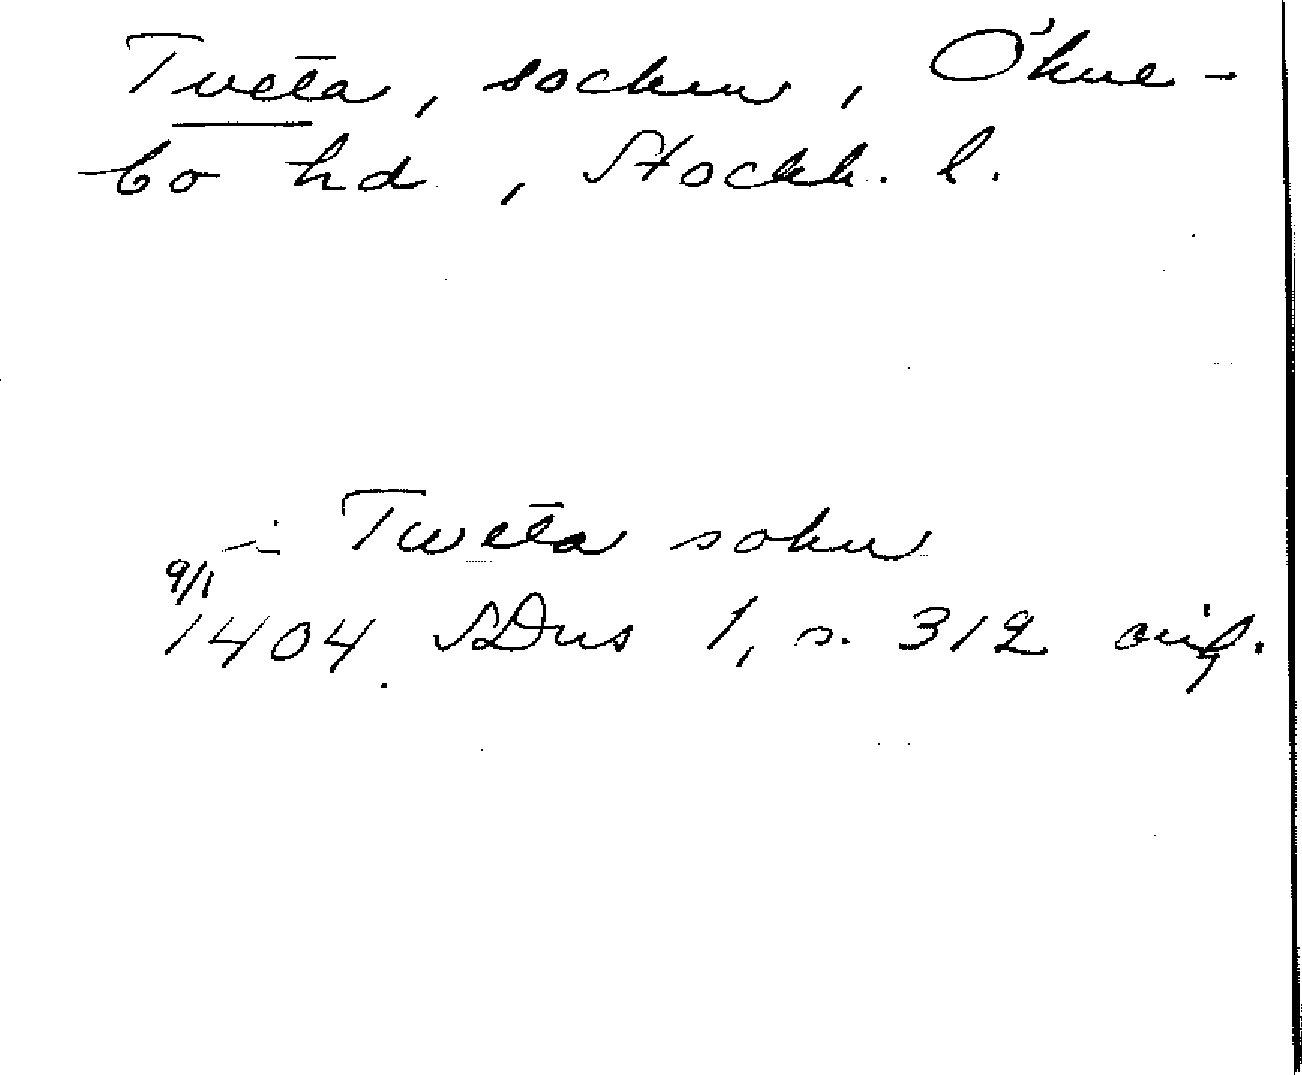 Tveta, socken, Ökne-
bo hd, Stockh. l.
i Tweta sokn
9/1
1404 SDns 1, s. 312 orig.